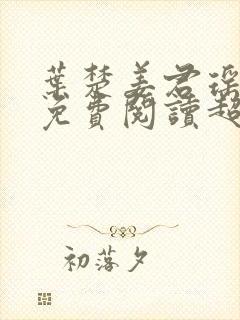 葉楚姜君瑶
免費閱讀超
初落夕